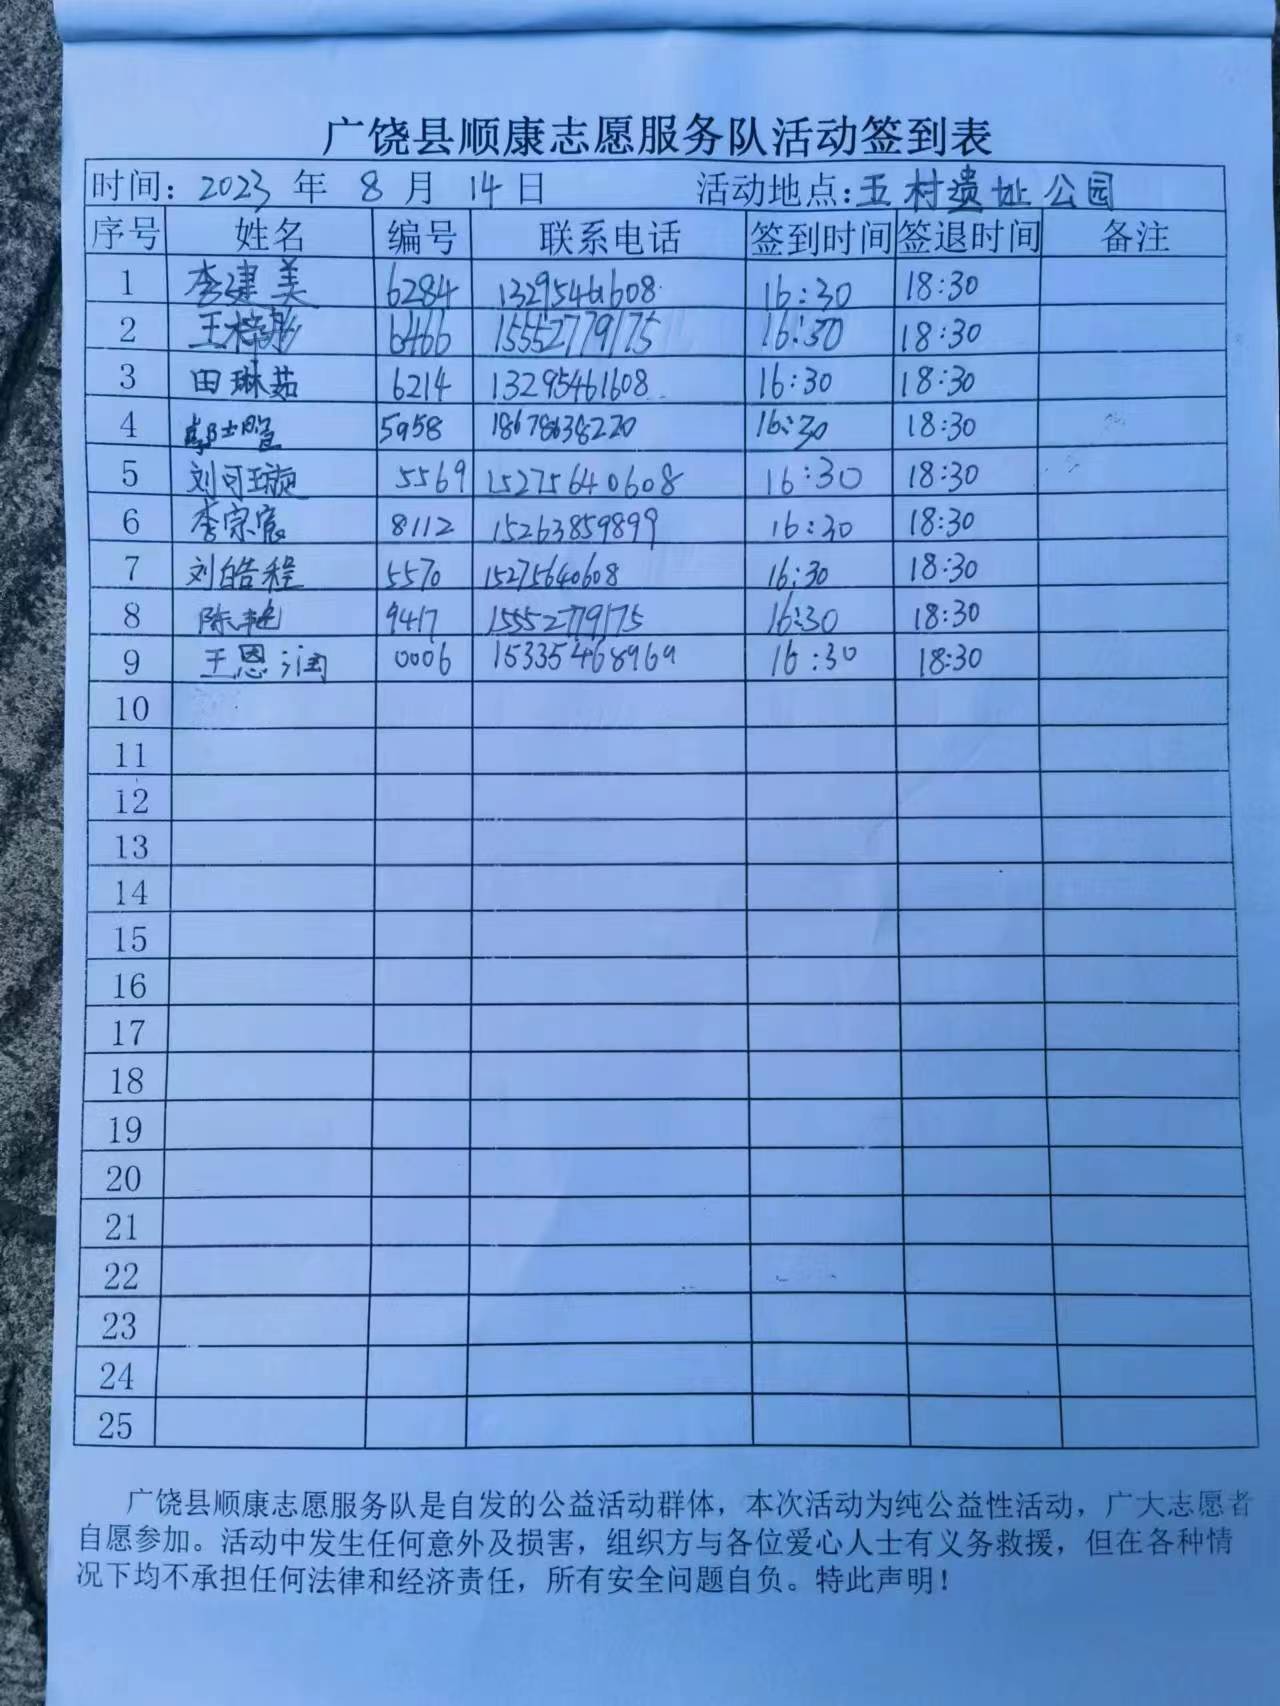 广饶县顺康志愿服务队活动签到表
时间: 2023 年 8 月 14 日 活动地点: 五村遗址公园
序号 姓名 编号 联系电话 签到时间 签退时间 备注
1 李建美 6284 13295461608 16:30 18:30
2 王梓彤 6466 15552779175 16:30 18:30
3 田琳茹 6214 13295461608 16:30 18:30
4 5958 18678638220 16:30 18:30
5 刘可璇 5569 15275640608 16:30 18:30
6 李宗宸 8112 15263859899 16:30 18:30
7 刘皓程 5570 15275640608 16:30 18:30
8 陈艳 9417 15552779175 16:30 18:30
9 王恩润 0006 15335468969 16:30 18:30
10
11
12
13
14
15
16
17
18
19
20
21
22
23
24
25
广饶县顺康志愿服务队是自发的公益活动群体，本次活动为纯公益性活动，广大志愿者
自愿参加。活动中发生任何意外及损害，组织方与各位爱心人士有义务救援，但在各种情
况下均不承担任何法律和经济责任，所有安全问题自负。特此声明！